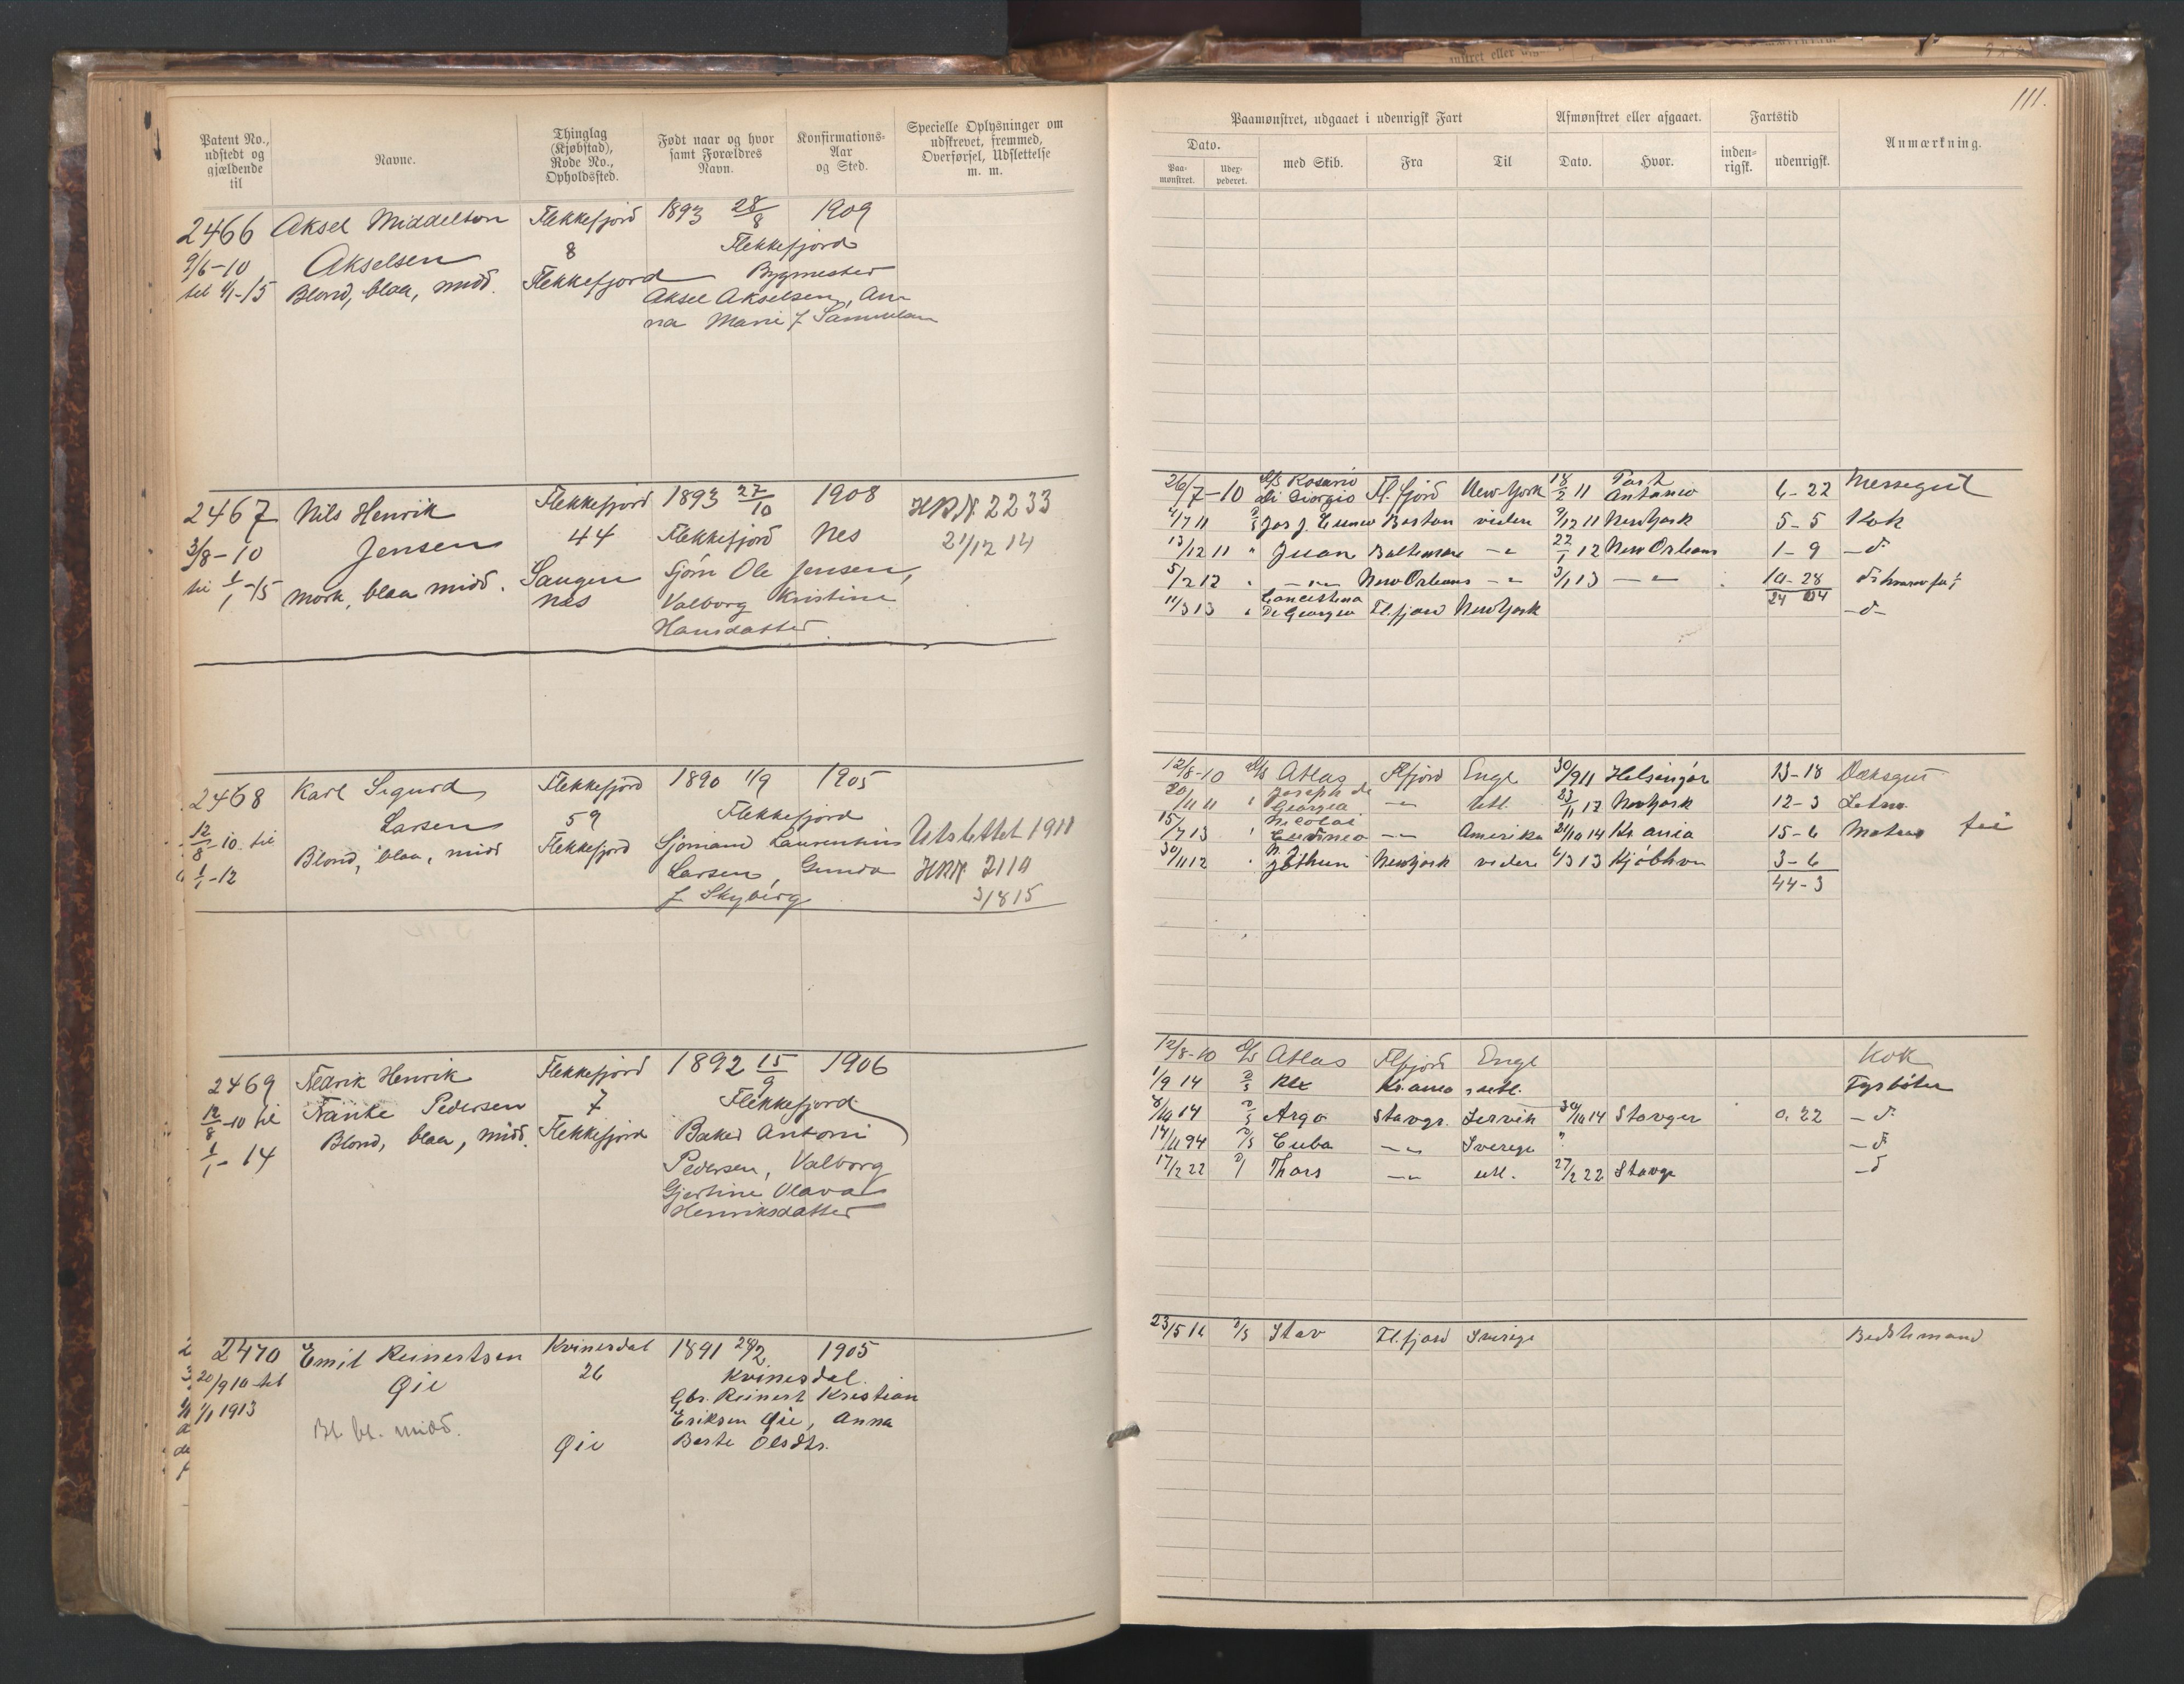 111.
Patent No., udstedt og gjældende til
Navne.
Thinglag (Kjøbstad), Rode No., Opholdssted.
Født naar og hvor samt Forældres Navn.
Konfirmations-Aar og Sted.
Specielle Oplysninger om udskrevet, fremmed, Overførsel, Udslettelse m. m.
Paamønstret, udgaaet i udenrigsk Fart
Afmønstret eller afgaaet.
Fartstid
Anmærkning.
Dato.
med Skib.
Fra
Til
Dato.
Hvor.
inden-rigsk.
udenrigsk.
Paa-mønstret.
2466 Aksel Middelton Flekkefjord 1893 28/8 1909
9/6-10 Akselsen 8 Flekkefjord
til 1/1-15 Blond, blaa, midd. Flekkefjord Bygmester
Aksel Akselsen, An-
na Marie f.
2467 Nils Henrik Flekkefjord 1893 27/10 1908 2233
3/8-10 Jensen 44 Flekkefjord Nes 21/12 14
til 1/1-15 mørk, blaa midd. Ole Jensen,
nes Valborg Kristine
Hansdatter
26/7-10 D/S Rosario di Giorgio Fl.fjord New York 18/2 11 Port Antonio 6-22 Messegut
11 Boston videre 11 New York 5-5 Kok
13/12 11 " Juan Baltimore -"- 22/1 12 New Orleans 1-9 -d-
5/2 12 " -"- New Orleans -"- 3/1 13 -"- 10-28
24 04
11/3 13 " De Georgio Fl.fjord New York -d-
2468 Karl Sigurd Flekkefjord 1890 1/9 1905
12/8-10 til Larsen 59 Flekkefjord
1/1-12 Blond, blaa, midd Flekkefjord Sjømand Laurentius
Larsen, Gunda 2110
f. Skyberg 3/8 15
12/8-10 D/S Atlas Fl.fjord Engl 30/9 11 Helsingør 13-18 Dæksgut
20/11 11 " Joseph di Georgia -"- utl. 12 New York 12-3
15/7 13 " Nicolai -"- Amerika 14 Kr.ania 15-6 Matros
30/11 12 " New York videre 6/3 13 Kjøbhvn 3-6
44-3
2469 Fredrik Henrik Flekkefjord 1892 15/9 1906
12/8-10 til Pedersen 7 Flekkefjord
1/1-14 Blond, blaa, midd. Flekkefjord Baker Antoni
Pedersen, Valborg
Gjertine Olava
Henriksdatter
12/8-10 D/S Atlas Fl.fjord Engl Kok
1/9 14 D/S Rex Kr.ania utl. Fyrbøter
14 D/S Argo Stavgr. 30/10 14 Stavger 0.22 -d-
D/S Cuba -"- Sverige " -d-
17/2 22 D/ Thors -"- utl. 27/2 22 Stavgr -d-
2470 Emil Reinertsen Kvinesdal 1891 1905
20/9 10 til Øie 26 Kvinesdal.
1/1 1913 Gbr. Reinert Kristian
Bl. bl. midd. Eriksen Øie, Anna
Øie Berte Olsdtr.
23/5 16 D/S Stav Fl.fjord Sverige Bedstemand